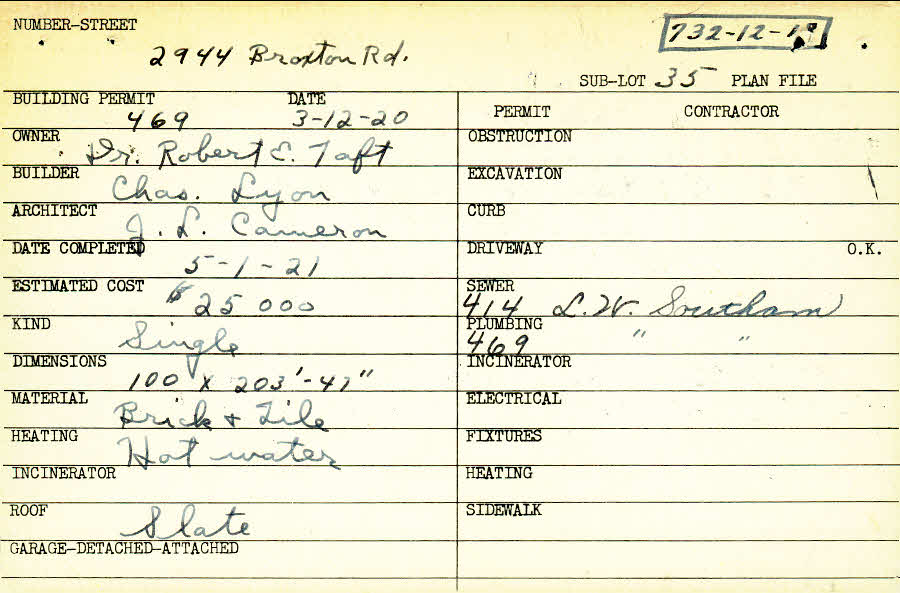 NUMBER-STREET
2944 Braxton Rd.
732-12-19
SUB-LOT 35 PLAN FILE
BUILDING PERMIT DATE
469 3-12-20
OWNER
Dr. Robert E. Taft
BUILDER
Chas. Lyon
ARCHITECT
J. L. Cameron
DATE COMPLETED
5-1-21
ESTIMATED COST
$25 000
KIND
Single
DIMENSIONS
100 X 203'-47"
MATERIAL
Brick + Tile
HEATING
Hot water
INCINERATOR
ROOF
Slate
GARAGE-DETACHED-ATTACHED
PERMIT CONTRACTOR
OBSTRUCTION
EXCAVATION
CURB
DRIVEWAY O.K.
SEWER
414 L. W. Southam
PLUMBING
469 " "
INCINERATOR
ELECTRICAL
FIXTURES
HEATING
SIDEWALK